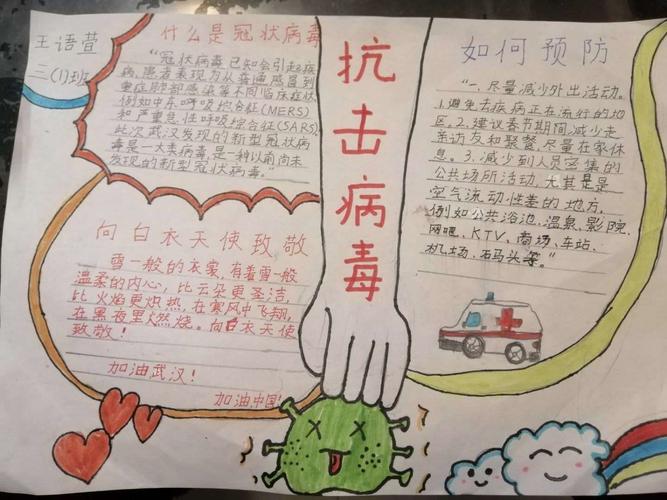 王语萱
二(1)班
什么是冠状病毒
“冠状病毒 已知会引起疾
病,患者表现为从普通感冒到
重症肺部感染等不同临床症状,
例如中东呼吸综合征(MERS)
和严重急性呼吸综合征(SARS),
此次武汉发现的新型冠状病
毒是一大类病毒是一种以前尚未
发现的新型冠状病毒。”
向白衣天使致敬
雪一般的衣裳,有着雪一般
温柔的内心,比云朵更圣洁,
比火焰更炽热,在寒风中飞翔,
在黑夜里燃烧。向白衣天使
致敬!
加油武汉!
加油中国!
抗击病毒
如何预防
“一、尽量减少外出活动。
1.避免去疾病正在流行的地
区。2.建议春节期间减少走
亲访友和聚餐,尽量在家休
息。3.减少到人员密集的
公共场所活动,尤其是是
空气流动性差的地方,
例如公共浴池、温泉、影院、
网吧、KTV、商场、车站、
机场、码头等。”